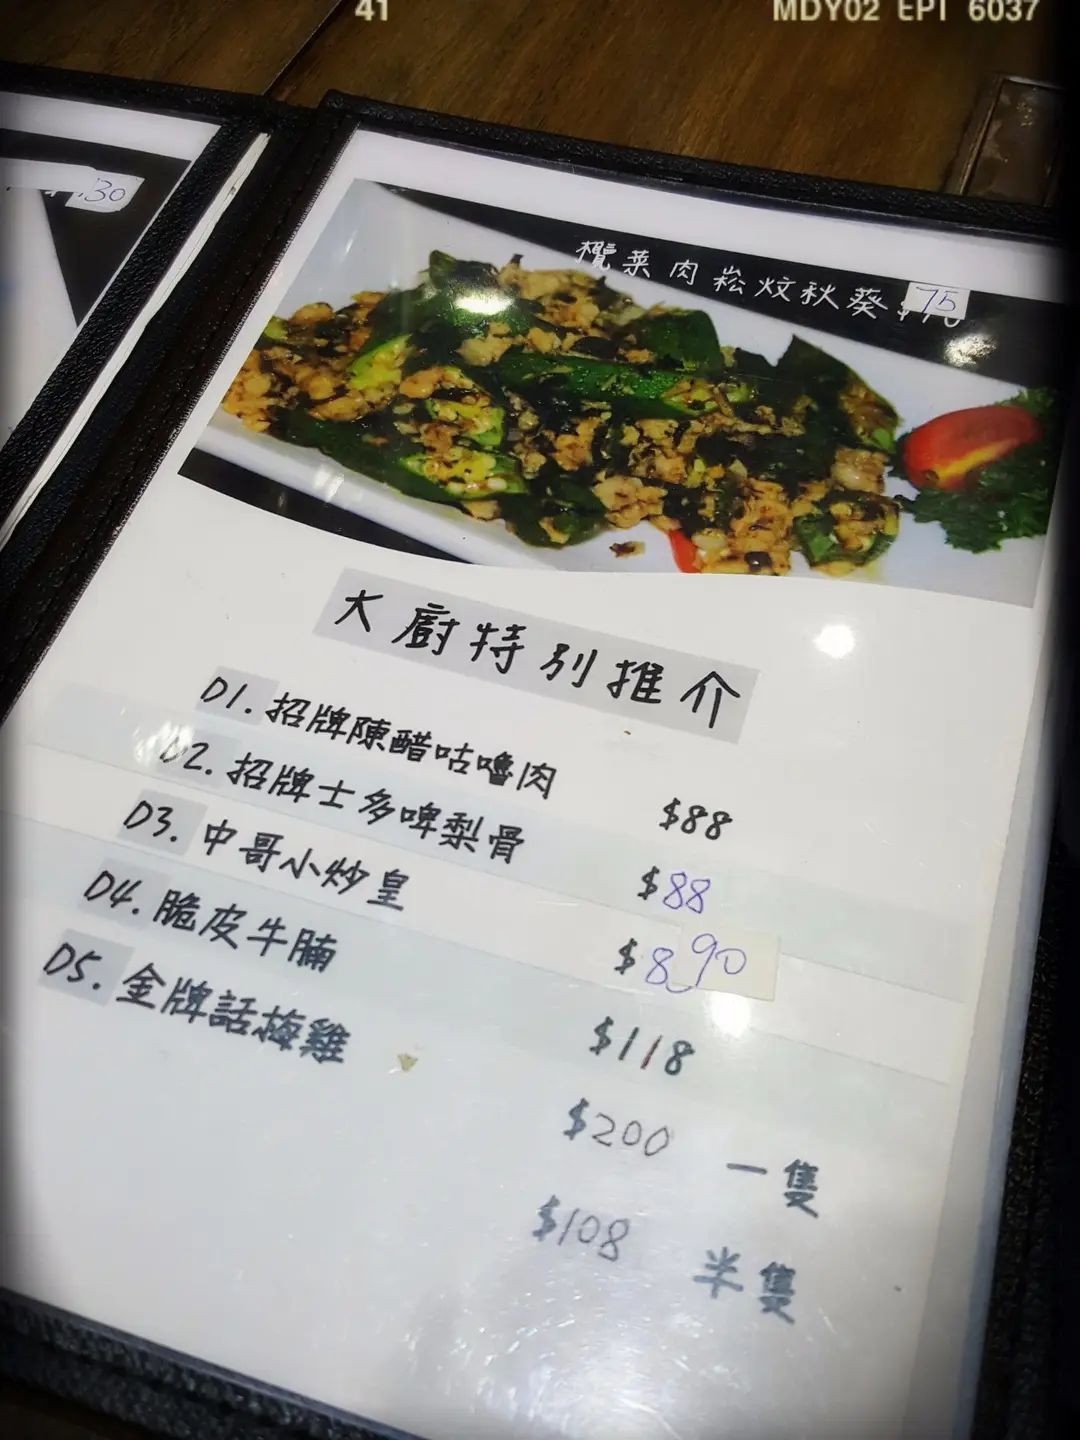 41 MDY02 EPI 6037
130
欖菜肉崧炆秋葵 $75
大廚特別推介
D1. 招牌陳醋咕嚕肉 $88
D2. 招牌士多啤梨骨 $88
D3. 中哥小炒皇 $890
D4. 脆皮牛腩 $118
D5. 金牌話梅雞 $200 一隻
$108 半隻